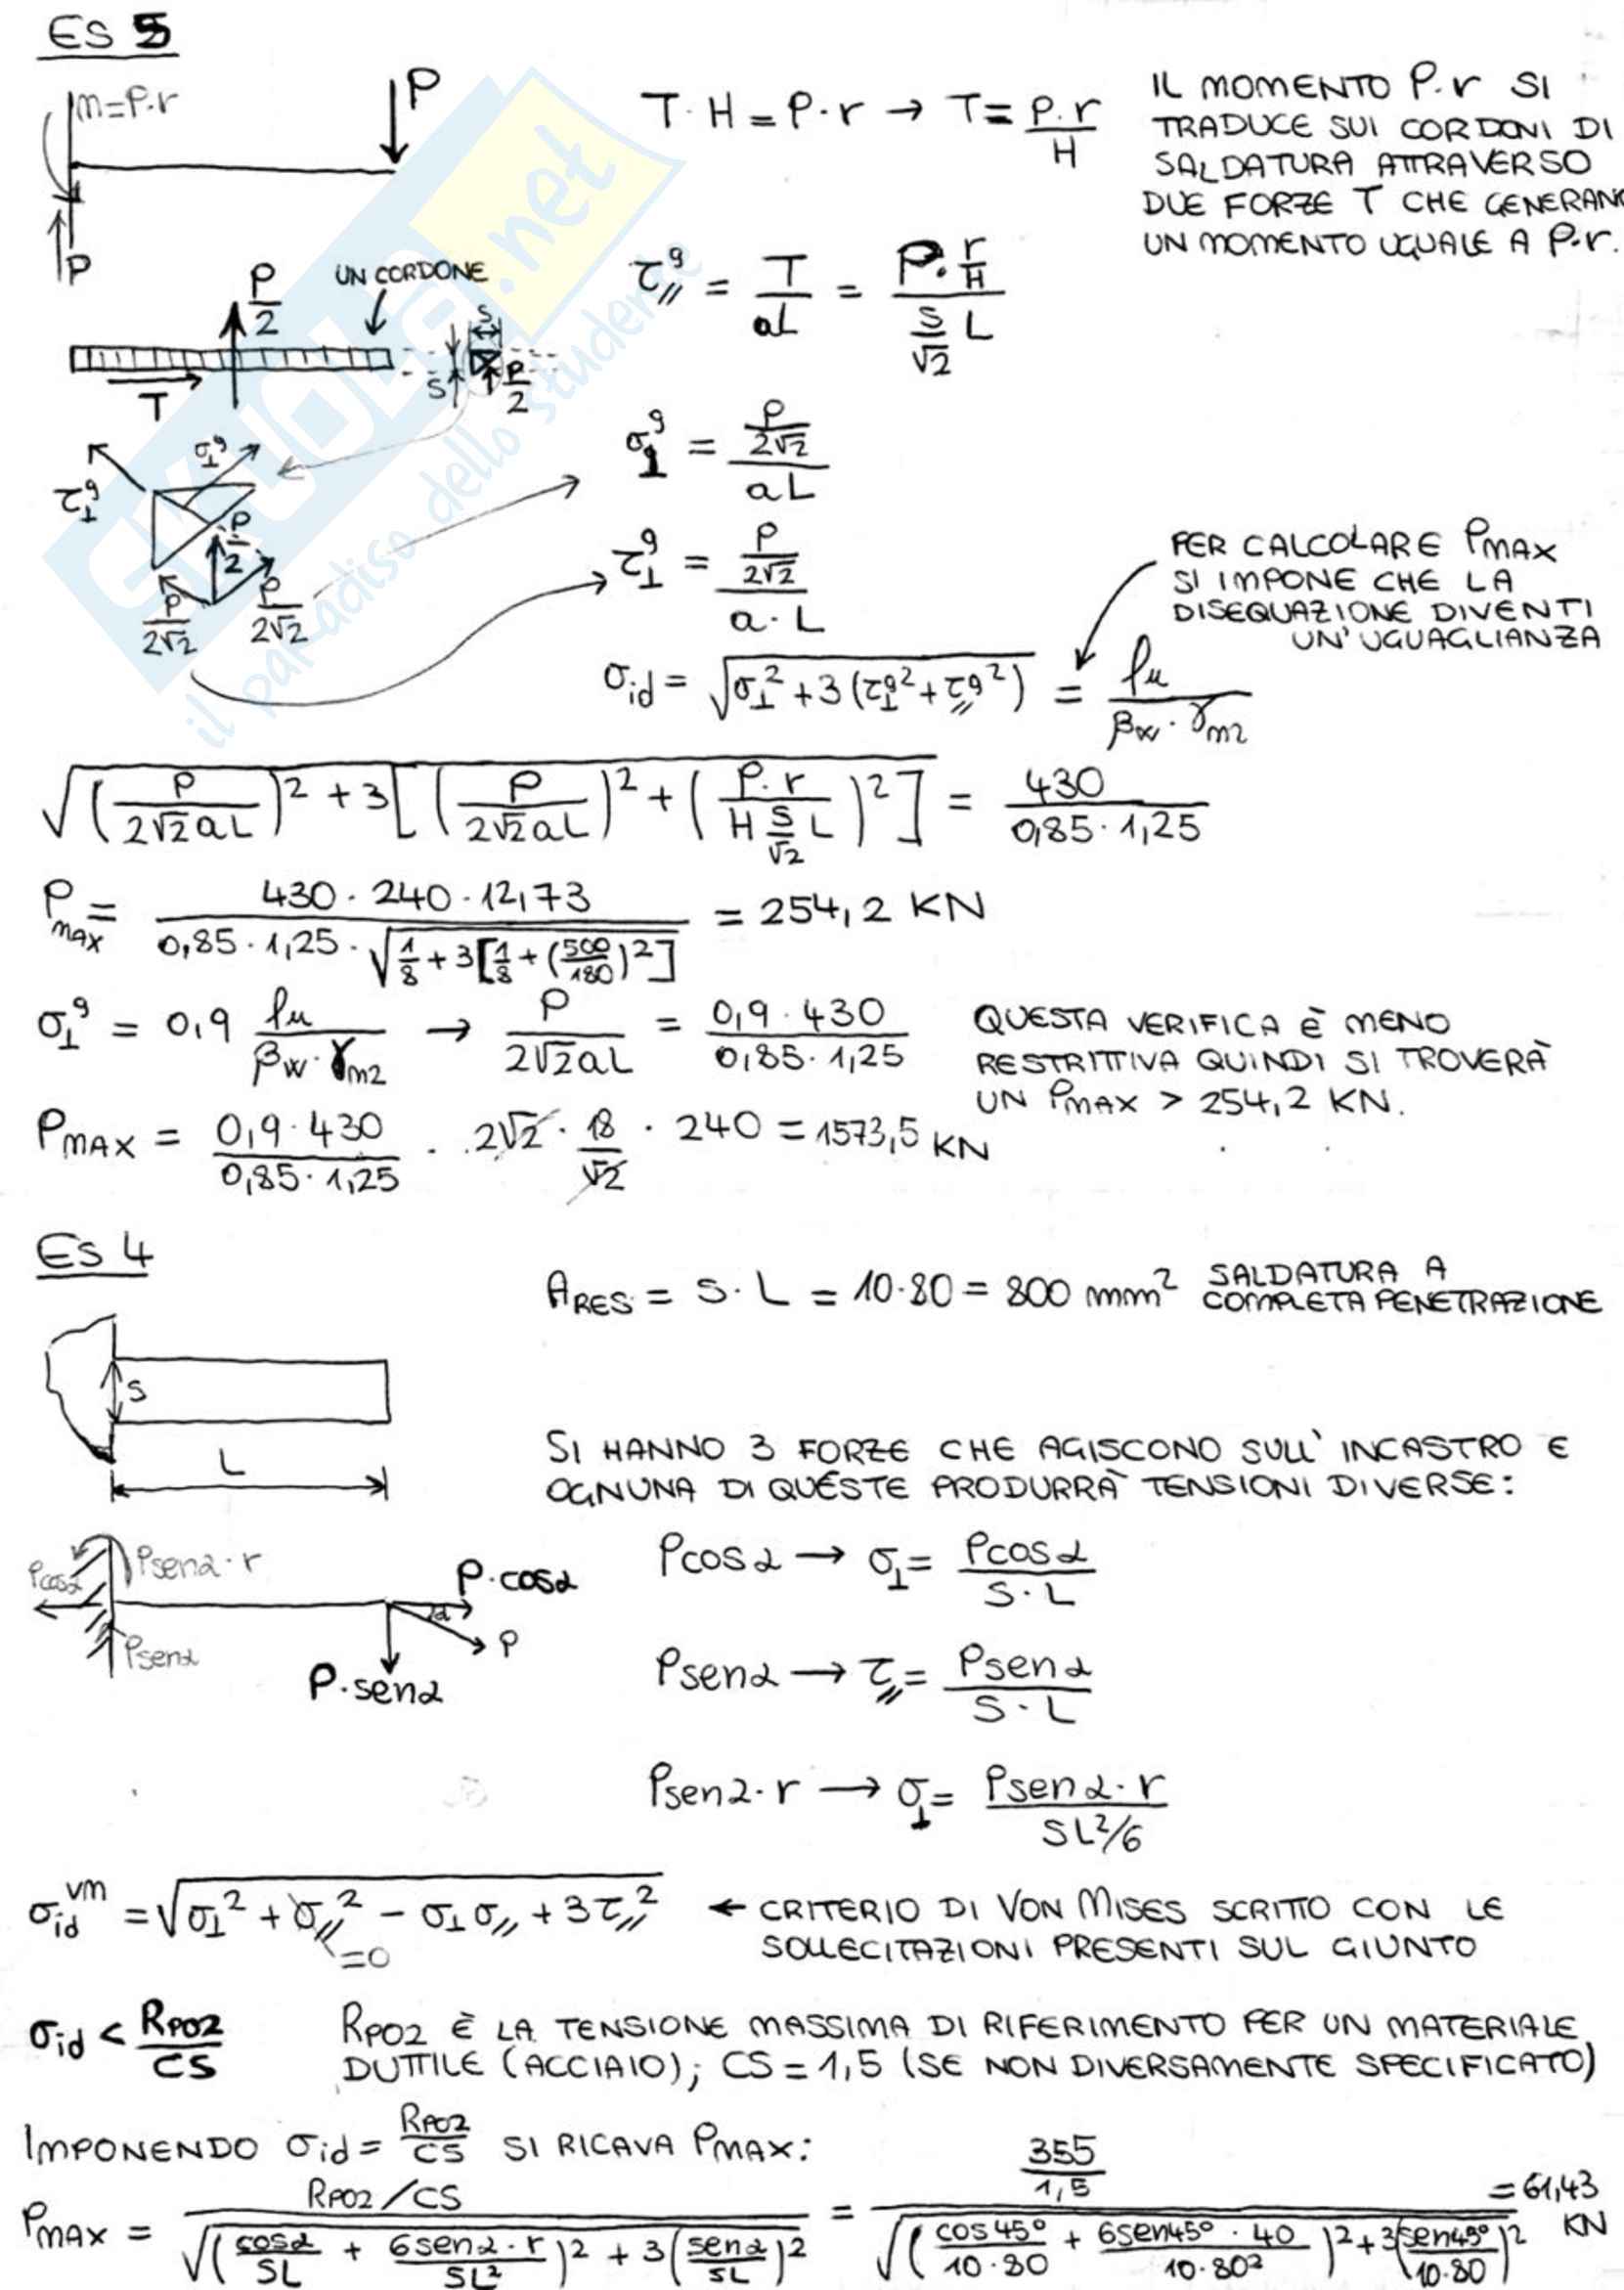 ES 5
m=P·r
P
T·H = P·r → T = P·r/H
IL MOMENTO P·r SI
TRADUCE SUI CORDONI DI
SALDATURA ATTRAVERSO
DUE FORZE T CHE GENERANO
UN MOMENTO UGUALE A P·r.
P
P/2
UN CORDONE
S
S
P/2
T
τ∥ᵍ = T/aL = (P·r/H)/(S/√2 L)
σ⊥ᵍ
τ⊥ᵍ
P/2
P/2√2
P/2√2
σ⊥ᵍ = (P/2√2)/aL
τ⊥ᵍ = (P/2√2)/a·L
PER CALCOLARE PMAX
SI IMPONE CHE LA
DISEQUAZIONE DIVENTI
UN'UGUAGLIANZA
σid = √(σ⊥² + 3(τ⊥ᵍ² + τ∥ᵍ²)) = fu/(βw·γm2)
√((P/2√2aL)² + 3[(P/2√2aL)² + (P·r/(H S/√2 L))²]) = 430/(0,85·1,25)
Pmax = 430·240·12,73/(0,85·1,25·√(1/8+3[1/8+(500/180)²])) = 254,2 KN
σ⊥ᵍ = 0,9 fu/(βw·γm2) → P/2√2aL = 0,9·430/(0,85·1,25)
QUESTA VERIFICA È MENO
RESTRITTIVA QUINDI SI TROVERÀ
UN PMAX > 254,2 KN.
PMAX = 0,9·430/(0,85·1,25) · 2√2 · 18/√2 · 240 = 1573,5 KN
ES 4
ARES = S·L = 10·80 = 800 mm² SALDATURA A
COMPLETA PENETRAZIONE
S
L
SI HANNO 3 FORZE CHE AGISCONO SULL'INCASTRO E
OGNUNA DI QUESTE PRODURRÀ TENSIONI DIVERSE:
Pcosα
Psenα·r
Psenα
P·cosα
α
P
P·senα
Pcosα → σ⊥ = Pcosα/S·L
Psenα → τ∥ = Psenα/S·L
Psenα·r → σ⊥ = Psenα·r/(SL²/6)
σidᵛᵐ = √(σ⊥² + σ∥² - σ⊥σ∥ + 3τ∥²) ← CRITERIO DI VON MISES SCRITTO CON LE
=0
SOLLECITAZIONI PRESENTI SUL GIUNTO
σid < RP02/CS
RP02 È LA TENSIONE MASSIMA DI RIFERIMENTO PER UN MATERIALE
DUTTILE (ACCIAIO); CS=1,5 (SE NON DIVERSAMENTE SPECIFICATO)
IMPONENDO σid = RP02/CS SI RICAVA PMAX:
PMAX = (RP02/CS)/√((cosα/SL + 6senα·r/SL²)² + 3(senα/SL)²) = (355/1,5)/√((cos45°/10·80 + 6sen45°·40/10·80²)² + 3(sen45°/10·80)²) = 61,43 KN
SKUOLA.net
il paradiso dello studente